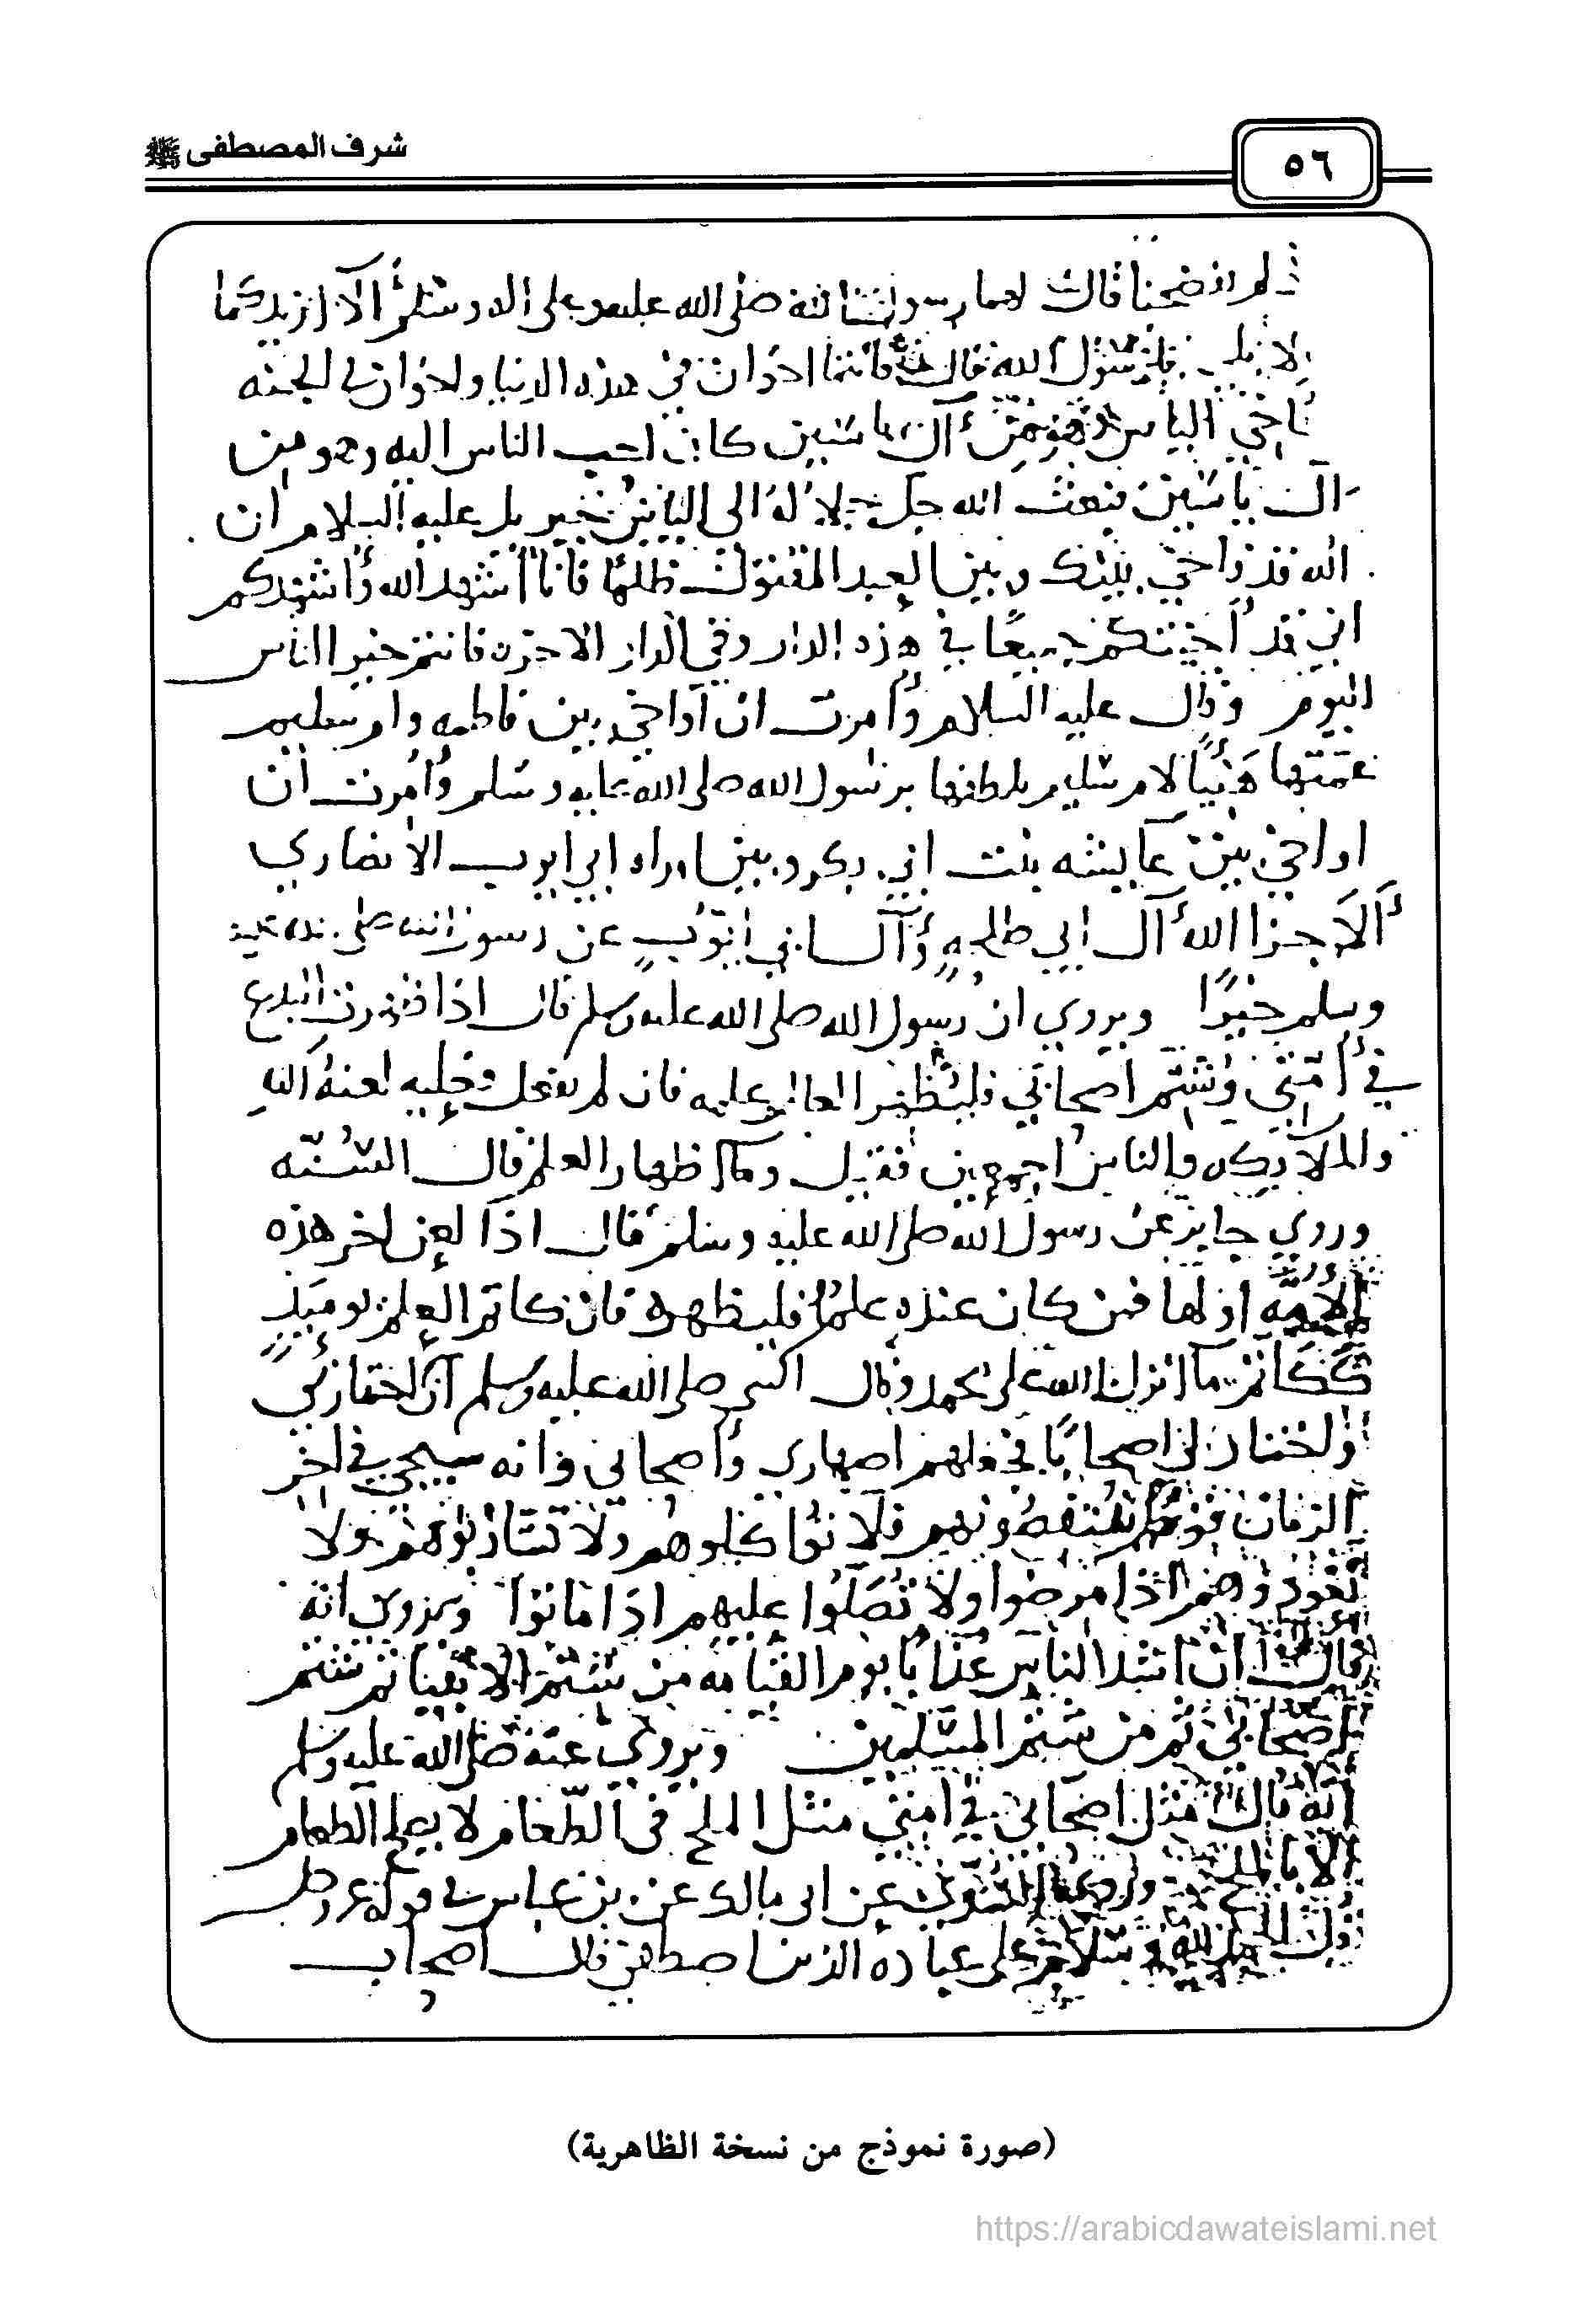 شرف المصطفى ﷺ
٥٦
قال لهما رسول الله صلى الله عليه وعلى اله وسلم ألا ازيدكما
رسول الله قال فأنتما اخوان في هذه الدنيا واخوان في الجنه
ياسين كان احب الناس اليه وهو من
ال ياسين فبعث الله جل جلاله الى جبريل عليه السلام ان
الله قد واخى بينك وبين العبد المقتول ظلما فأنا اشهد الله وأشهدكم
اني قد أخيتكم جميعا في هذه الدار وفي الدار الاخرة فانتم خير الناس
اليوم وقال عليه السلام وأمرت ان أواخي بين فاطمه وام سليم
هنيا لام سليم بلطفها برسول الله صلى الله عليه وسلم وأمرت ان
اواخي بين عايشه بنت ابي بكر وبين امراة ابي ايوب الانصاري
ألا جزا الله آل ابي طلحه وآل ابي ايوب عن رسول الله صلى الله عليه
وسلم خيرا ويروي ان رسول الله صلى الله عليه وسلم قال اذا ظهرت البدع
في أمتي وشتم اصحابي فليظهر العالم علمه فان لم يفعل فعليه لعنة الله
والملايكه والناس اجمعين فقيل وما اظهار العلم قال السنه
وروي جابر عن رسول الله صلى الله عليه وسلم قال اذا لعن اخر هذه
الامه اولها فمن كان عنده علم فليظهره فان كاتم العلم يوميذ
ككاتم ما انزل الله على محمد وقال النبي صلى الله عليه وسلم ان الله اختارني
واختار لي اصحابا فجعلهم اصهاري وأصحابي وانه سيجي في اخر
الزمان قوم ينتقصونهم فلا تواكلوهم ولا تشاربوهم ولا
تعودوهم اذا مرضوا ولا تصلوا عليهم اذا ماتوا ويروى انه
قال ان اشد الناس عذابا يوم القيامه من شتم الانبيا ثم شتم
اصحابي ثم من شتم المسلمين ويروى عنه صلى الله عليه وسلم
انه قال مثل اصحابي في امتي مثل الملح في الطعام لا يصلح الطعام
الا بالملح وروى السدي عن ابي مالك عن بن عباس في قوله عز وجل
قل الحمد لله وسلام على عباده الذين اصطفى قال اصحاب
(صورة نموذج من نسخة الظاهرية)
https://arabicdawateislami.net